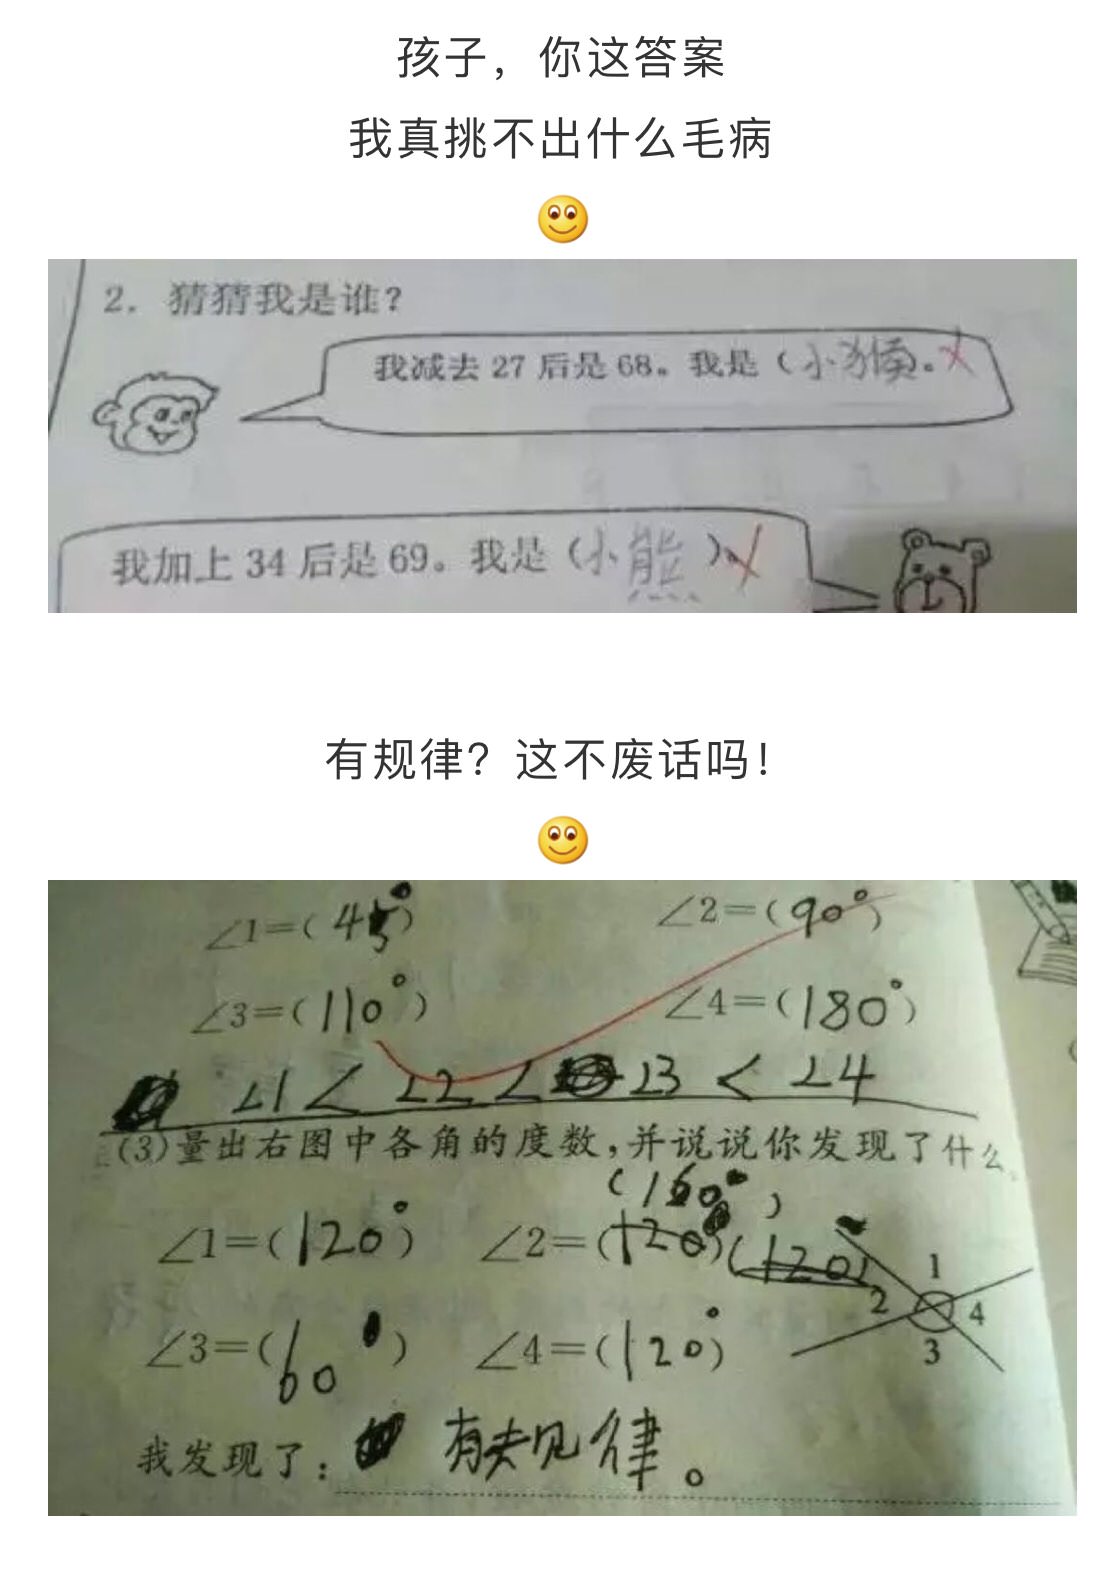 孩子，你这答案
我真挑不出什么毛病
2. 猜猜我是谁？
我减去 27 后是 68。我是（小猴。
我加上 34 后是 69。我是（小熊）。
有规律？这不废话吗！
∠1=(45°)
∠2=(90°)
∠3=(110°)
∠4=(180°)
∠1 < ∠2 < ∠3 < ∠4
(3)量出右图中各角的度数,并说说你发现了什么。
(160°)
∠1=(120°)
∠2=(120°)
(120)
1
2
4
3
∠3=(60°)
∠4=(120°)
我发现了：有规律。